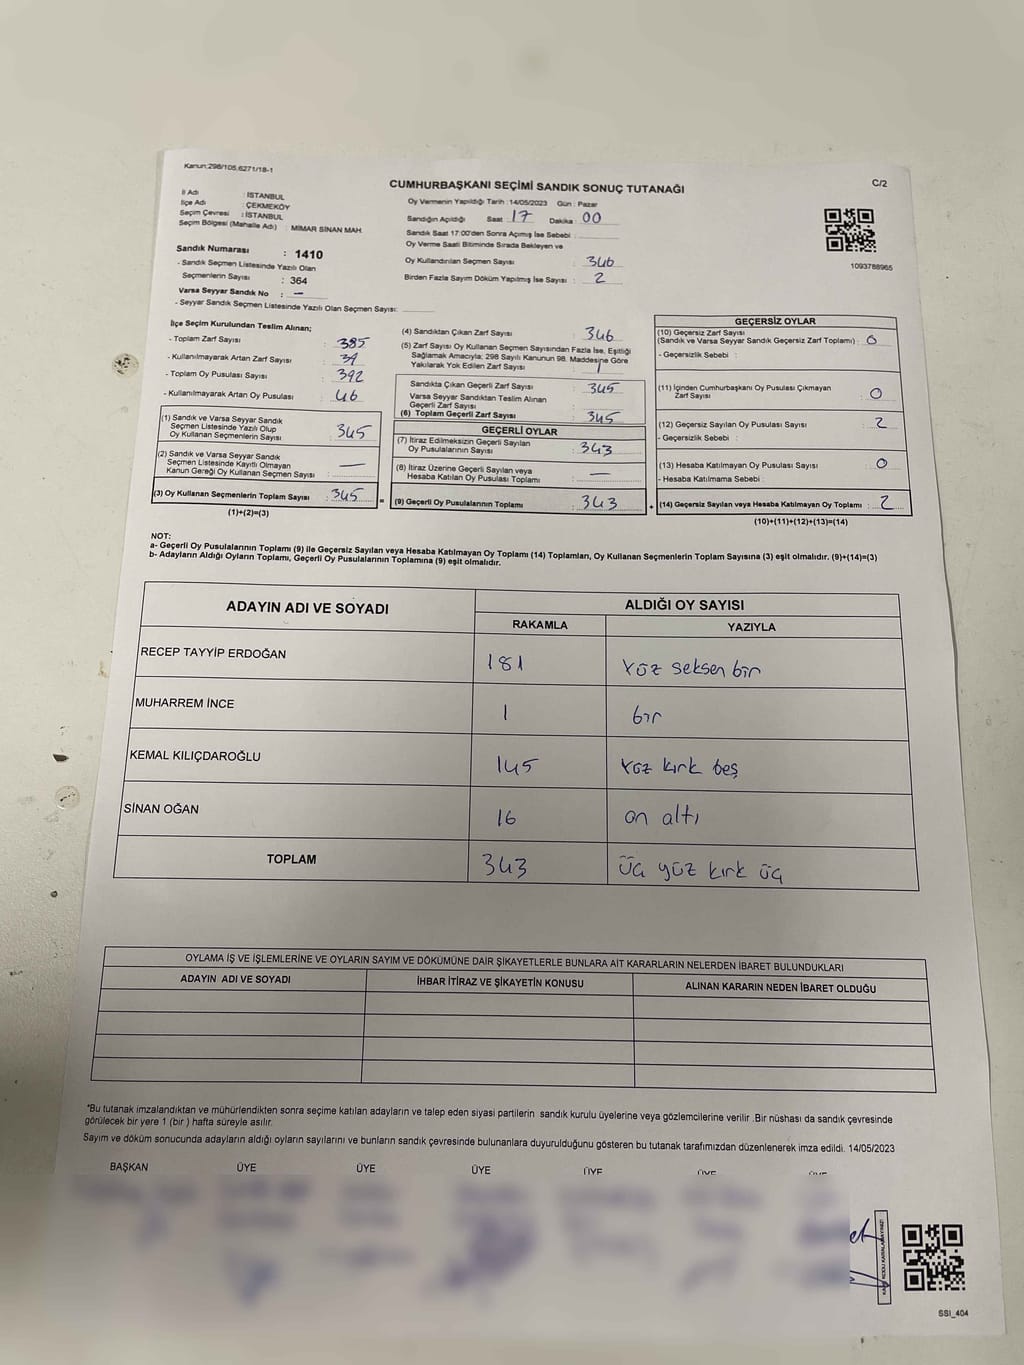 Kanun:298/105,6271/18-1
C/2
CUMHURBAŞKANI SEÇİMİ SANDIK SONUÇ TUTANAĞI
İl Adı : İSTANBUL
İlçe Adı : ÇEKMEKÖY
Seçim Çevresi : İSTANBUL
Seçim Bölgesi (Mahalle Adı) : MİMAR SİNAN MAH.
Sandık Numarası : 1410
- Sandık Seçmen Listesinde Yazılı Olan
Seçmenlerin Sayısı : 364
Varsa Seyyar Sandık No : —
- Seyyar Sandık Seçmen Listesinde Yazılı Olan Seçmen Sayısı:
Oy Vermenin Yapıldığı Tarih : 14/05/2023 Gün : Pazar
Sandığın Açıldığı Saat : 17 Dakika : 00
Sandık Saat 17:00'den Sonra Açımış İse Sebebi :
Oy Verme Saati Bitiminde Sırada Bekleyen ve
Oy Kullandırılan Seçmen Sayısı : 346
Birden Fazla Sayım Döküm Yapılmış İse Sayısı : 2
1093788965
İlçe Seçim Kurulundan Teslim Alınan;
- Toplam Zarf Sayısı : 385
- Kullanılmayarak Artan Zarf Sayısı : 39
- Toplam Oy Pusulası Sayısı : 392
- Kullanılmayarak Artan Oy Pusulası : 46
(1) Sandık ve Varsa Seyyar Sandık
Seçmen Listesinde Yazılı Olup
Oy Kullanan Seçmenlerin Sayısı : 345
(2) Sandık ve Varsa Seyyar Sandık
Seçmen Listesinde Kayıtlı Olmayan
Kanun Gereği Oy Kullanan Seçmen Sayısı : —
(3) Oy Kullanan Seçmenlerin Toplam Sayısı : 345
(1)+(2)=(3)
=
(4) Sandıktan Çıkan Zarf Sayısı : 346
(5) Zarf Sayısı Oy Kullanan Seçmen Sayısından Fazla İse, Eşitliği
Sağlamak Amacıyla; 298 Sayılı Kanunun 98. Maddesine Göre
Yakılarak Yok Edilen Zarf Sayısı : 1
Sandıkta Çıkan Geçerli Zarf Sayısı : 345
Varsa Seyyar Sandıktan Teslim Alınan
Geçerli Zarf Sayısı :
(6) Toplam Geçerli Zarf Sayısı : 345
GEÇERLİ OYLAR
(7) İtiraz Edilmeksizin Geçerli Sayılan
Oy Pusulalarının Sayısı : 343
(8) İtiraz Üzerine Geçerli Sayılan veya
Hesaba Katılan Oy Pusulası Toplamı : —
(9) Geçerli Oy Pusulalarının Toplamı : 343
+
GEÇERSİZ OYLAR
(10) Geçersiz Zarf Sayısı
(Sandık ve Varsa Seyyar Sandık Geçersiz Zarf Toplamı) : 0
- Geçersizlik Sebebi :
(11) İçinden Cumhurbaşkanı Oy Pusulası Çıkmayan
Zarf Sayısı : 0
(12) Geçersiz Sayılan Oy Pusulası Sayısı : 2
- Geçersizlik Sebebi :
(13) Hesaba Katılmayan Oy Pusulası Sayısı : 0
- Hesaba Katılmama Sebebi :
(14) Geçersiz Sayılan veya Hesaba Katılmayan Oy Toplamı : 2
(10)+(11)+(12)+(13)=(14)
NOT:
a- Geçerli Oy Pusulalarının Toplamı (9) ile Geçersiz Sayılan veya Hesaba Katılmayan Oy Toplamı (14) Toplamları, Oy Kullanan Seçmenlerin Toplam Sayısına (3) eşit olmalıdır. (9)+(14)=(3)
b- Adayların Aldığı Oyların Toplamı, Geçerli Oy Pusulalarının Toplamına (9) eşit olmalıdır.
ADAYIN ADI VE SOYADI ALDIĞI OY SAYISI
RAKAMLA YAZIYLA
RECEP TAYYİP ERDOĞAN 181 Yüz seksen bir
MUHARREM İNCE 1 bir
KEMAL KILIÇDAROĞLU 145 Yüz kırk beş
SİNAN OĞAN 16 on altı
TOPLAM 343 üç yüz kırk üç
OYLAMA İŞ VE İŞLEMLERİNE VE OYLARIN SAYIM VE DÖKÜMÜNE DAİR ŞİKAYETLERLE BUNLARA AİT KARARLARIN NELERDEN İBARET BULUNDUKLARI
ADAYIN ADI VE SOYADI İHBAR İTİRAZ VE ŞİKAYETİN KONUSU ALINAN KARARIN NEDEN İBARET OLDUĞU
*Bu tutanak imzalandıktan ve mühürlendikten sonra seçime katılan adayların ve talep eden siyasi partilerin sandık kurulu üyelerine veya gözlemcilerine verilir .Bir nüshası da sandık çevresinde
görülecek bir yere 1 (bir ) hafta süreyle asılır.
Sayım ve döküm sonucunda adayların aldığı oyların sayılarını ve bunların sandık çevresinde bulunanlara duyurulduğunu gösteren bu tutanak tarafımızdan düzenlenerek imza edildi. 14/05/2023
BAŞKAN ÜYE ÜYE ÜYE ÜYE ÜYE ÜYE
SSI_404